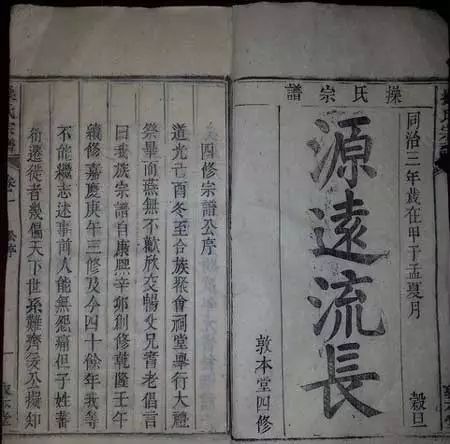 操氏宗譜
同治三年歲在甲子孟夏月 穀旦
源遠流長
敦本堂四修
四修宗譜公序
道光己酉冬至合族聚會祠堂舉行大禮
祭畢而燕無不歡欣交暢父兄耆老倡言
曰我族宗譜自康熙辛卯創修乾隆壬午
續修嘉慶庚午三修及今四十餘年我等
不能繼志述事前人能無怨痛但子姓蕃
衍遷徙者幾徧天下世系難齊後人擬知
氏宗譜